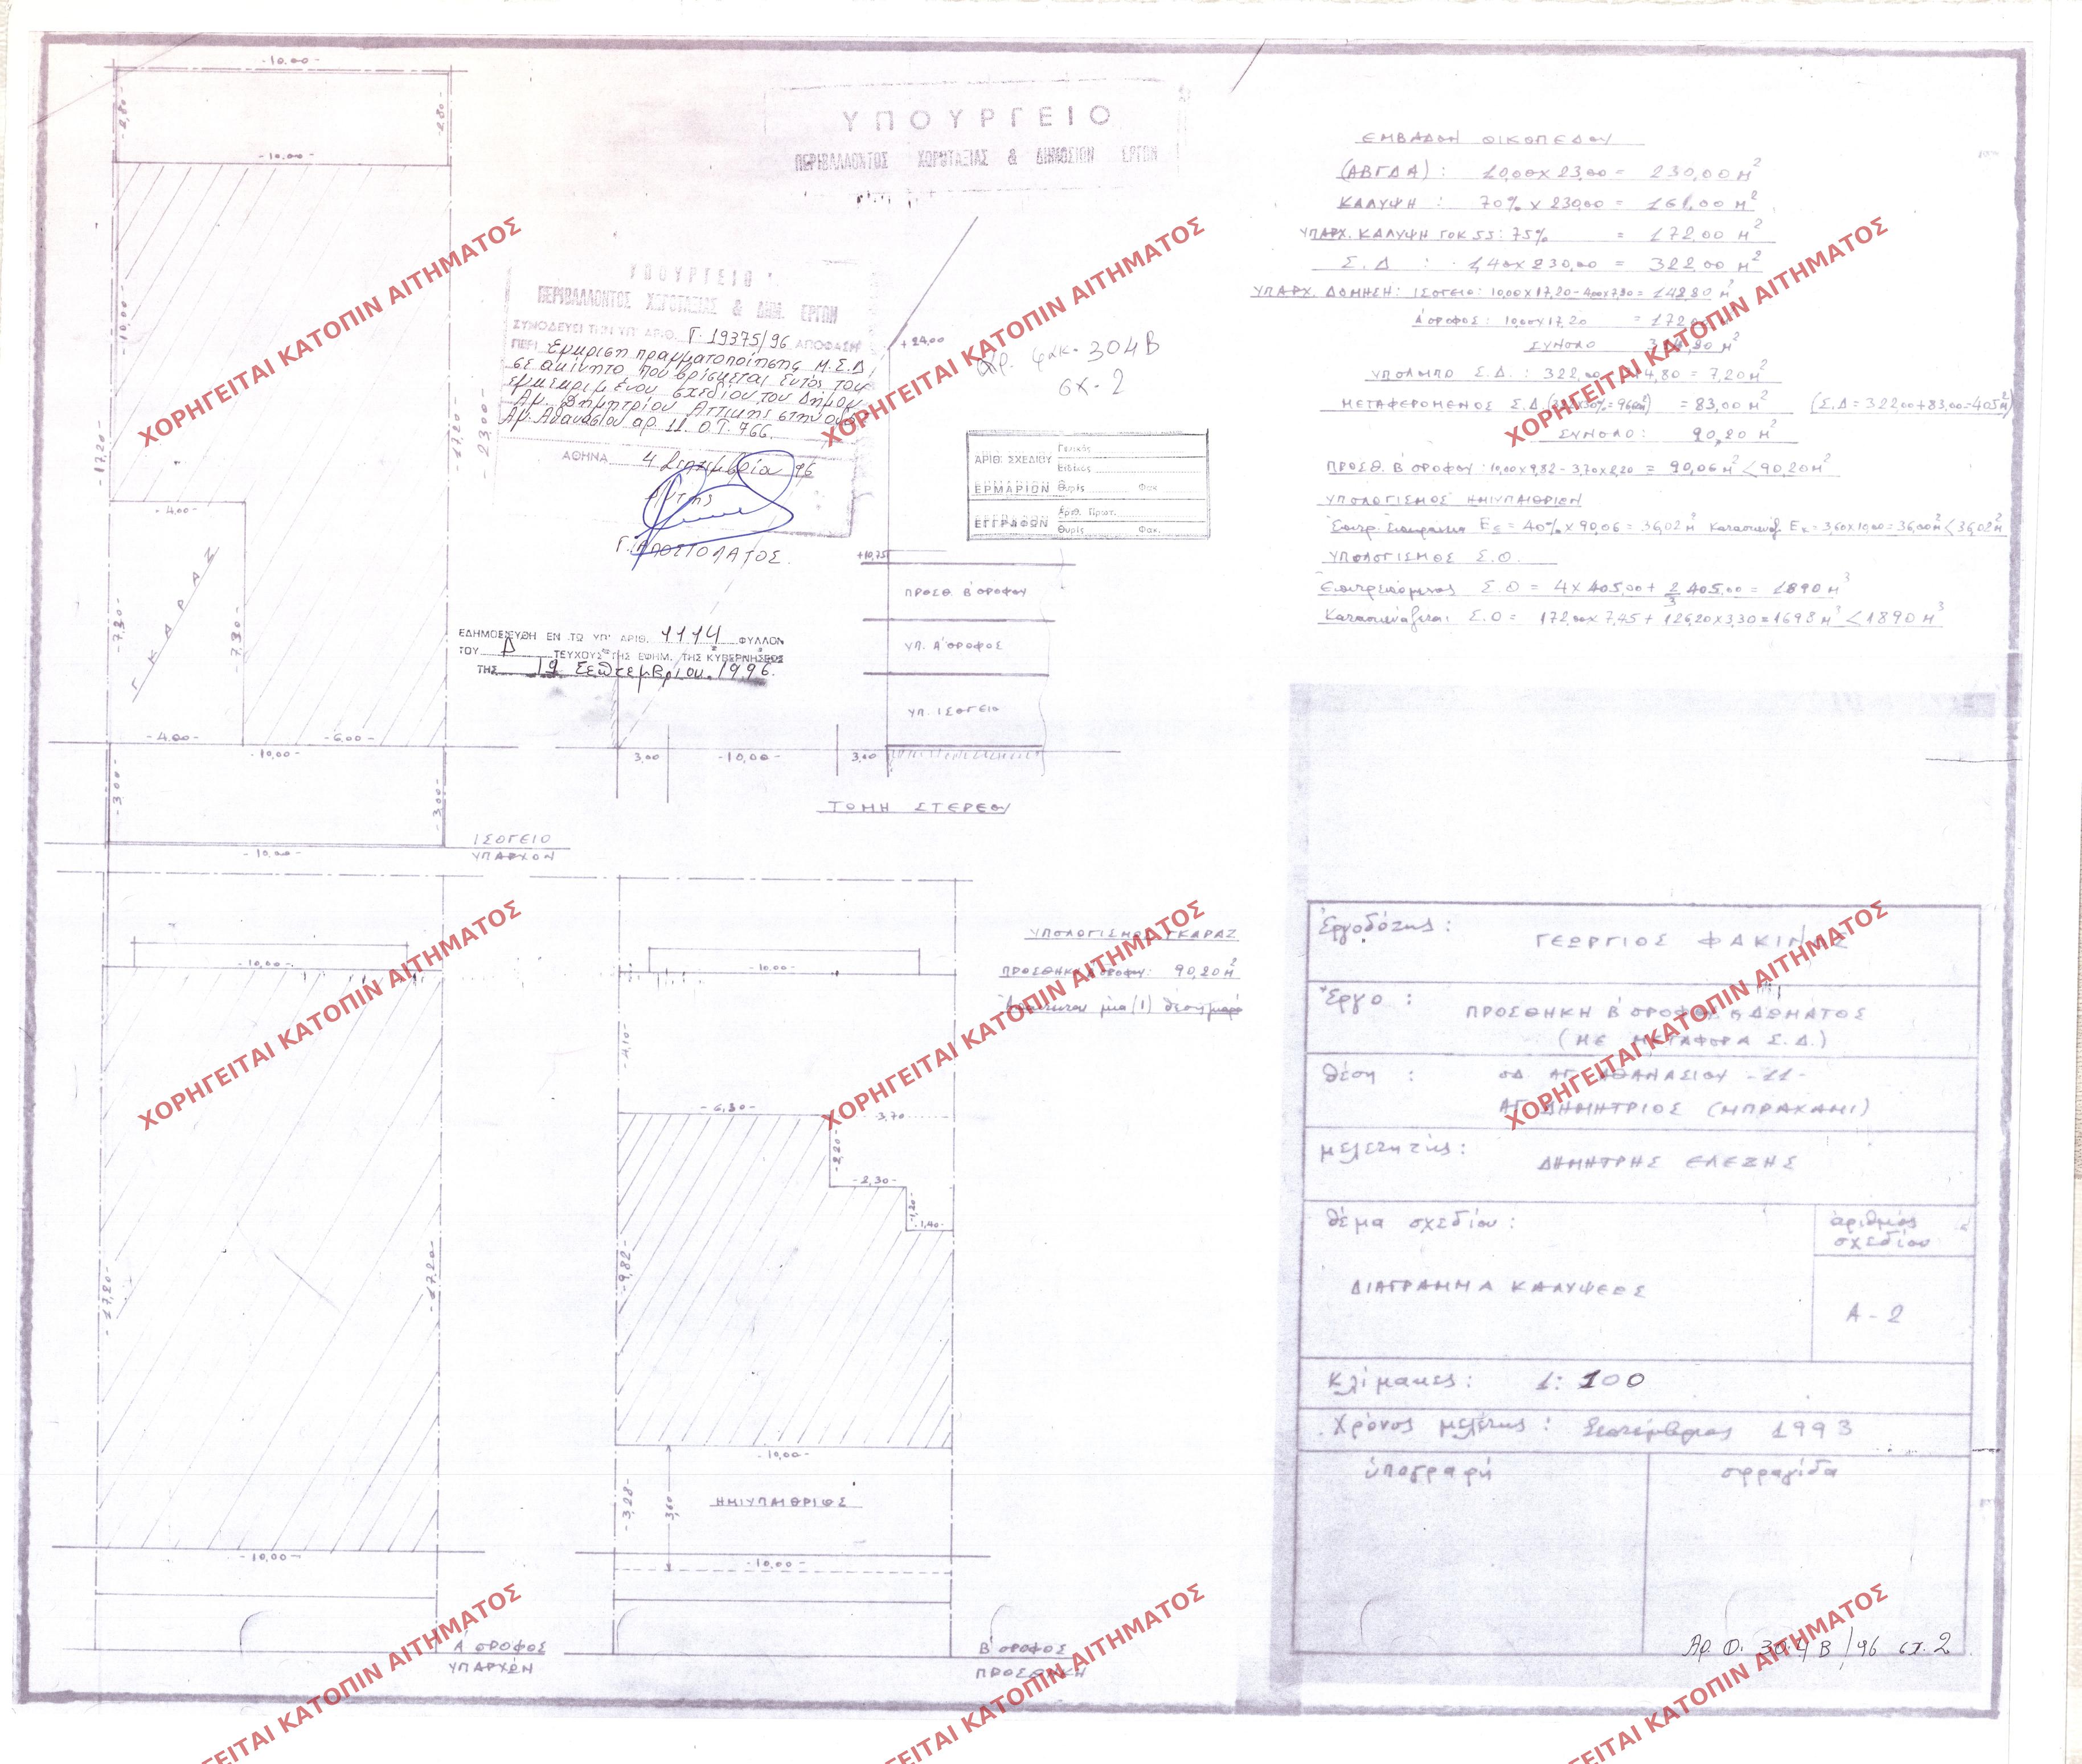 -10.00-
-2,80-
-2.80-
-10,00-
-10,00-
-17,20-
-17,20-
-23,00-
-4,00-
ΓΚΑΡΑΖ
-7,30-
-7,30-
-4.00-
-6,00-
-10,00-
-3,00-
-3,00-
-10,00-
ΙΣΟΓΕΙΟ
ΥΠΑΡΧΟΝ
ΥΠΟΥΡΓΕΙΟ
ΠΕΡΙΒΑΛΛΟΝΤΟΣ ΧΩΡΟΤΑΞΙΑΣ & ΔΗΜΟΣΙΩΝ ΕΡΓΩΝ
ΥΠΟΥΡΓΕΙΟ
ΠΕΡΙΒΑΛΛΟΝΤΟΣ ΧΩΡΟΤΑΞΙΑΣ & ΔΗΜ. ΕΡΓΩΝ
ΣΥΝΟΔΕΥΕΙ ΤΗΝ ΥΠ' ΑΡΙΘ. Γ. 19375/96 ΑΠΟΦΑΣΗ
ΠΕΡΙ Έγκριση πραγματοποίησης Μ.Σ.Δ,
σε ακίνητο που βρίσκεται εντός του
εγκεκριμένου σχεδίου του Δήμου
Αγ. Δημητρίου Αττικής στην οδό
Αγ. Αθανασίου αρ. 11. Ο.Τ. 766.
ΑΘΗΝΑ 4 Σεπτεμβρίου 96
Γ. ΑΠΟΣΤΟΛΑΤΟΣ.
ΕΔΗΜΟΣΙΕΥΘΗ ΕΝ ΤΩ ΥΠ' ΑΡΙΘ. 1114 ΦΥΛΛΟΝ
ΤΟΥ Δ ΤΕΥΧΟΥΣ ΤΗΣ ΕΦΗΜ. ΤΗΣ ΚΥΒΕΡΝΗΣΕΩΣ
ΤΗΣ 19 Σεπτεμβρίου 1996.
+24,00
αρ. φακ. 304Β
σχ. 2
ΑΡΙΘ. ΣΧΕΔΙΟΥ Γενικός
Ειδικός
ΕΡΜΑΡΙΩΝ Θυρίς Φακ.
Αριθ. Πρωτ.
ΕΓΓΡΑΦΩΝ Θυρίς Φακ.
+10,75
ΠΡΟΣΘ. Β΄ ΟΡΟΦΟΥ
ΥΠ. Α΄ ΟΡΟΦΟΣ
ΥΠ. ΙΣΟΓΕΙΟ
3,00
-10,00-
3,00
ΤΟΜΗ ΣΤΕΡΕΟΥ
ΕΜΒΑΔΟΝ ΟΙΚΟΠΕΔΟΥ
(ΑΒΓΔΑ) : 10,00 x 23,00 = 230,00 Μ²
ΚΑΛΥΨΗ : 70% x 230,00 = 161,00 Μ²
ΥΠΑΡΧ. ΚΑΛΥΨΗ ΓΟΚ 55: 75% = 172,00 Μ²
Σ.Δ : 1,40 x 230,00 = 322,00 Μ²
ΥΠΑΡΧ. ΔΟΜΗΣΗ: ΙΣΟΓΕΙΟ: 10,00 x 17,20 - 4,00 x 7,30 = 142,80 Μ²
Α΄ ΟΡΟΦΟΣ: 10,00 x 17,20 = 172,00 Μ²
ΣΥΝΟΛΟ 314,80 Μ²
ΥΠΟΛΟΙΠΟ Σ.Δ. : 322,00 - 314,80 = 7,20 Μ²
ΜΕΤΑΦΕΡΟΜΕΝΟΣ Σ.Δ = 83,00 Μ² (Σ.Δ = 322,00 + 83,00 = 405 Μ²)
ΣΥΝΟΛΟ: 90,20 Μ²
ΠΡΟΣΘ. Β΄ ΟΡΟΦΟΥ : 10,00 x 9,82 - 3,70 x 2,20 = 90,06 Μ² < 90,20 Μ²
ΥΠΟΛΟΓΙΣΜΟΣ ΗΜΙΥΠΑΙΘΡΙΩΝ
Επιτρ. Επιφάνεια Ε = 40% x 90,06 = 36,02 Μ² Κατασκευάζ. Ε = 3,60 x 10,00 = 36,00 Μ² < 36,02 Μ²
ΥΠΟΛΟΓΙΣΜΟΣ Σ.Ο.
Επιτρεπόμενος Σ.Ο = 4 x 405,00 + 2/3 405,00 = 1890 Μ³
Κατασκευάζεται Σ.Ο = 172,00 x 7,45 + 126,20 x 3,30 = 1698 Μ³ < 1890 Μ³
-10,00-
-17,20-
-17,20-
-10,00-
Α΄ ΟΡΟΦΟΣ
ΥΠΑΡΧΩΝ
-10.00-
-4,10-
-6,30-
3,70
-2,20-
-2,30-
-1,20-
-1,40-
-9,82-
-10,00-
-3,28-
3,60
ΗΜΙΥΠΑΙΘΡΙΟΣ
-10,00-
Β΄ ΟΡΟΦΟΣ
ΠΡΟΣΘΗΚΗ
ΥΠΟΛΟΓΙΣΜΟΣ ΓΚΑΡΑΖ
ΠΡΟΣΘΗΚΗ ΟΡΟΦΟΥ: 90,20 Μ²
Απαιτείται μία (1) θέση
Έργοδότης :
ΓΕΩΡΓΙΟΣ ΦΑΚΙΝΟΣ
Έργο :
ΠΡΟΣΘΗΚΗ Β΄ ΟΡΟΦΟΥ & ΔΩΜΑΤΟΣ
(ΜΕ ΜΕΤΑΦΟΡΑ Σ.Δ.)
θέση :
ΟΔ. ΑΓ. ΑΘΑΝΑΣΙΟΥ -11-
ΑΓ. ΔΗΜΗΤΡΙΟΣ (ΜΠΡΑΧΑΜΙ)
μελετητής:
ΔΗΜΗΤΡΗΣ ΕΛΕΖΗΣ
θέμα σχεδίου :
ἀριθμός
σχεδίου
ΔΙΑΓΡΑΜΜΑ ΚΑΛΥΨΕΩΣ
Α-2
Κλίμακες : 1: 100
Χρόνος μελέτης : Σεπτέμβριος 1993
ὑπογραφή
σφραγίδα
Αρ. Φ. 304Β/96 σχ. 2
ΧΟΡΗΓΕΙΤΑΙ ΚΑΤΟΠΙΝ ΑΙΤΗΜΑΤΟΣ
ΧΟΡΗΓΕΙΤΑΙ ΚΑΤΟΠΙΝ ΑΙΤΗΜΑΤΟΣ
ΧΟΡΗΓΕΙΤΑΙ ΚΑΤΟΠΙΝ ΑΙΤΗΜΑΤΟΣ
ΧΟΡΗΓΕΙΤΑΙ ΚΑΤΟΠΙΝ ΑΙΤΗΜΑΤΟΣ
ΧΟΡΗΓΕΙΤΑΙ ΚΑΤΟΠΙΝ ΑΙΤΗΜΑΤΟΣ
ΧΟΡΗΓΕΙΤΑΙ ΚΑΤΟΠΙΝ ΑΙΤΗΜΑΤΟΣ
ΓΕΙΤΑΙ ΚΑΤΟΠΙΝ ΑΙΤΗΜΑΤΟΣ
ΓΕΙΤΑΙ ΚΑΤΟΠΙΝ ΑΙΤΗΜΑΤΟΣ
ΓΕΙΤΑΙ ΚΑΤΟΠΙΝ ΑΙΤΗΜΑΤΟΣ